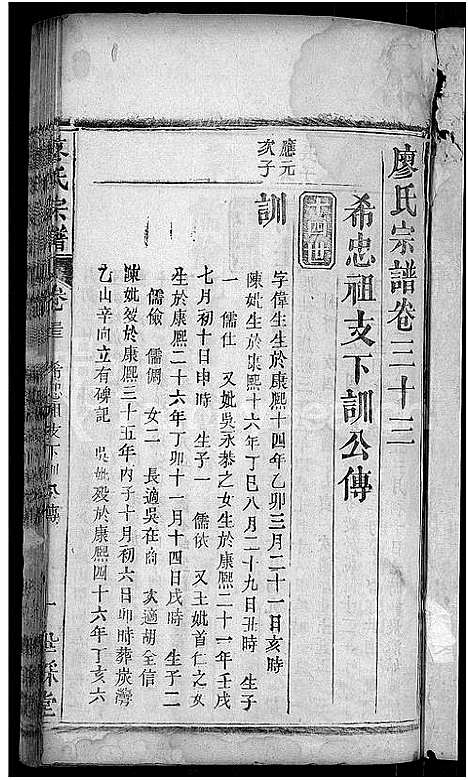 廖氏宗譜卷三十三
希忠祖支下訓公傳
十四世
應元
次子
訓
字偉生生於康熙十四年乙卯三月二十一日亥時
陳妣生於康熙十六年丁巳八月二十九日丑時 生子
一 儒仕 又妣吳永恭之女生於康熙二十一年壬戌
七月初十日申時 生子一 儒俊 又王妣首仁之女
生於康熙二十六年丁卯十一月十四日戌時 生子二
儒儉 儒倜 女二 長適吳在尚 次適胡全信
陳妣歿於康熙三十五年丙子十月初六日卯時葬炭灣
乙山辛向立有碑記 吳妣歿於康熙四十六年丁亥六
廖氏宗譜
卷三十三 希忠祖支下訓公傳 一 世綵堂